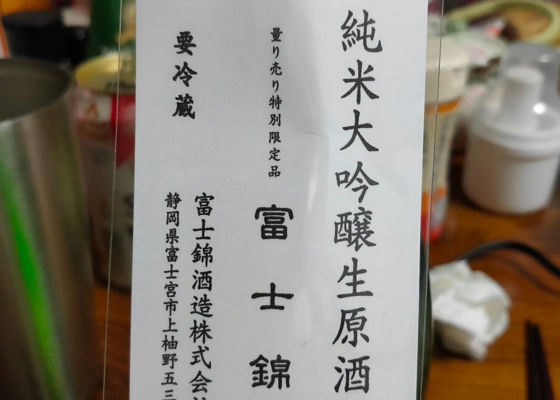 純米大吟醸生原酒
量り売り特別限定品 富士錦
要冷蔵
富士錦酒造株式会
静岡県富士宮市上柚野五三